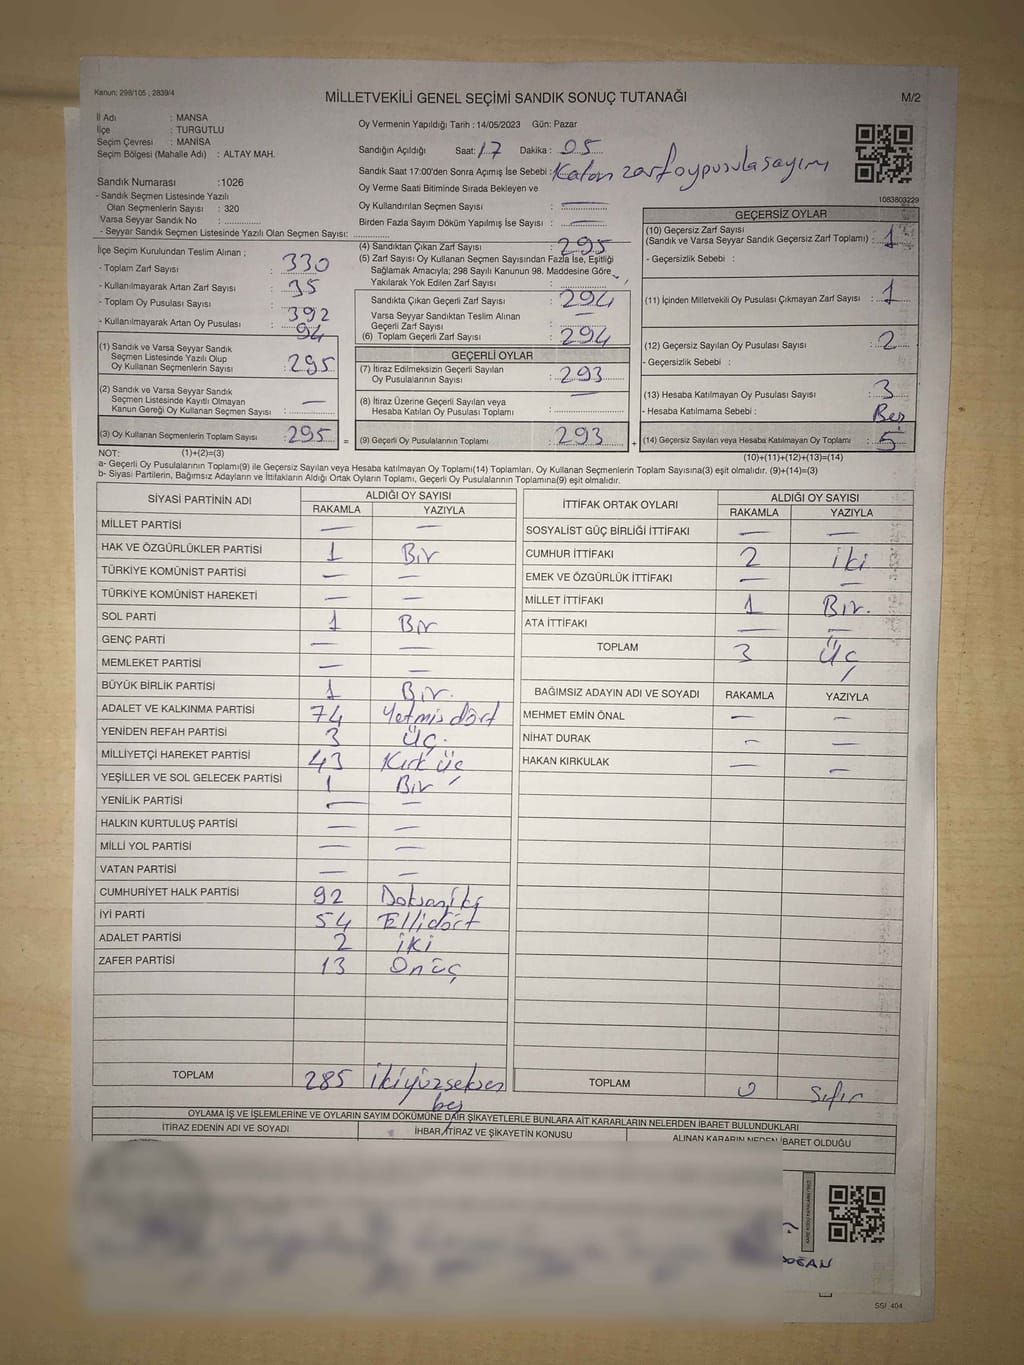 Kanun: 298/105 ; 2839/4
MİLLETVEKİLİ GENEL SEÇİMİ SANDIK SONUÇ TUTANAĞI
M/2
İl Adı : MANSA
İlçe : TURGUTLU
Seçim Çevresi : MANİSA
Seçim Bölgesi (Mahalle Adı) : ALTAY MAH.
Oy Vermenin Yapıldığı Tarih : 14/05/2023 Gün: Pazar
Sandığın Açıldığı Saat: 17 Dakika : 05
Sandık Saat 17:00'den Sonra Açımış İse Sebebi : Kalan zarf oypusula sayımı
Oy Verme Saati Bitiminde Sırada Bekleyen ve
Oy Kullandırılan Seçmen Sayısı : —
Birden Fazla Sayım Döküm Yapılmış İse Sayısı : —
1083803229
Sandık Numarası :1026
- Sandık Seçmen Listesinde Yazılı
Olan Seçmenlerin Sayısı : 320
Varsa Seyyar Sandık No :
- Seyyar Sandık Seçmen Listesinde Yazılı Olan Seçmen Sayısı:
İlçe Seçim Kurulundan Teslim Alınan ;
- Toplam Zarf Sayısı : 330
- Kullanılmayarak Artan Zarf Sayısı : 35
- Toplam Oy Pusulası Sayısı : 392
- Kullanılmayarak Artan Oy Pusulası : 94
(1) Sandık ve Varsa Seyyar Sandık
Seçmen Listesinde Yazılı Olup
Oy Kullanan Seçmenlerin Sayısı : 295
(2) Sandık ve Varsa Seyyar Sandık
Seçmen Listesinde Kayıtlı Olmayan
Kanun Gereği Oy Kullanan Seçmen Sayısı : —
(3) Oy Kullanan Seçmenlerin Toplam Sayısı : 295 =
(4) Sandıktan Çıkan Zarf Sayısı : 295
(5) Zarf Sayısı Oy Kullanan Seçmen Sayısından Fazla İse, Eşitliği
Sağlamak Amacıyla; 298 Sayılı Kanunun 98. Maddesine Göre
Yakılarak Yok Edilen Zarf Sayısı :
Sandıkta Çıkan Geçerli Zarf Sayısı : 294
Varsa Seyyar Sandıktan Teslim Alınan
Geçerli Zarf Sayısı : —
(6) Toplam Geçerli Zarf Sayısı : 294
GEÇERLİ OYLAR
(7) İtiraz Edilmeksizin Geçerli Sayılan
Oy Pusulalarının Sayısı : 293
(8) İtiraz Üzerine Geçerli Sayılan veya
Hesaba Katılan Oy Pusulası Toplamı : —
(9) Geçerli Oy Pusulalarının Toplamı : 293 +
GEÇERSİZ OYLAR
(10) Geçersiz Zarf Sayısı
(Sandık ve Varsa Seyyar Sandık Geçersiz Zarf Toplamı) : 1
- Geçersizlik Sebebi :
(11) İçinden Milletvekili Oy Pusulası Çıkmayan Zarf Sayısı : 1
(12) Geçersiz Sayılan Oy Pusulası Sayısı : 2
- Geçersizlik Sebebi :
(13) Hesaba Katılmayan Oy Pusulası Sayısı : 3
- Hesaba Katılmama Sebebi : Beş
(14) Geçersiz Sayılan veya Hesaba Katılmayan Oy Toplamı : 5
NOT: (1)+(2)=(3)
(10)+(11)+(12)+(13)=(14)
a- Geçerli Oy Pusulalarının Toplamı(9) ile Geçersiz Sayılan veya Hesaba katılmayan Oy Toplamı(14) Toplamları, Oy Kullanan Seçmenlerin Toplam Sayısına(3) eşit olmalıdır. (9)+(14)=(3)
b- Siyasi Partilerin, Bağımsız Adayların ve İttifakların Aldığı Ortak Oyların Toplamı, Geçerli Oy Pusulalarının Toplamına(9) eşit olmalıdır.
SİYASİ PARTİNİN ADI ALDIĞI OY SAYISI
RAKAMLA YAZIYLA
MİLLET PARTİSİ — —
HAK VE ÖZGÜRLÜKLER PARTİSİ 1 Bir
TÜRKİYE KOMÜNİST PARTİSİ — —
TÜRKİYE KOMÜNİST HAREKETİ — —
SOL PARTİ 1 Bir
GENÇ PARTİ — —
MEMLEKET PARTİSİ — —
BÜYÜK BİRLİK PARTİSİ 1 Bir.
ADALET VE KALKINMA PARTİSİ 74 Yetmis dört
YENİDEN REFAH PARTİSİ 3 Üç.
MİLLİYETÇİ HAREKET PARTİSİ 43 Kırk üç
YEŞİLLER VE SOL GELECEK PARTİSİ 1 Bir
YENİLİK PARTİSİ — —
HALKIN KURTULUŞ PARTİSİ — —
MİLLİ YOL PARTİSİ — —
VATAN PARTİSİ — —
CUMHURİYET HALK PARTİSİ 92 Doksan iki
İYİ PARTİ 54 Ellidört
ADALET PARTİSİ 2 iki
ZAFER PARTİSİ 13 Onüç
TOPLAM 285 ikiyüzseksen beş
İTTİFAK ORTAK OYLARI ALDIĞI OY SAYISI
RAKAMLA YAZIYLA
SOSYALİST GÜÇ BİRLİĞİ İTTİFAKI — —
CUMHUR İTTİFAKI 2 iki
EMEK VE ÖZGÜRLÜK İTTİFAKI — —
MİLLET İTTİFAKI 1 Bir.
ATA İTTİFAKI — —
TOPLAM 3 Üç
BAĞIMSIZ ADAYIN ADI VE SOYADI RAKAMLA YAZIYLA
MEHMET EMİN ÖNAL — —
NİHAT DURAK — —
HAKAN KIRKULAK — —
TOPLAM 0 Sıfır
OYLAMA İŞ VE İŞLEMLERİNE VE OYLARIN SAYIM DÖKÜMÜNE DAİR ŞİKAYETLERLE BUNLARA AİT KARARLARIN NELERDEN İBARET BULUNDUKLARI
İTİRAZ EDENİN ADI VE SOYADI İHBAR,İTİRAZ VE ŞİKAYETİN KONUSU ALINAN KARARIN NEDEN İBARET OLDUĞU
SSI_404